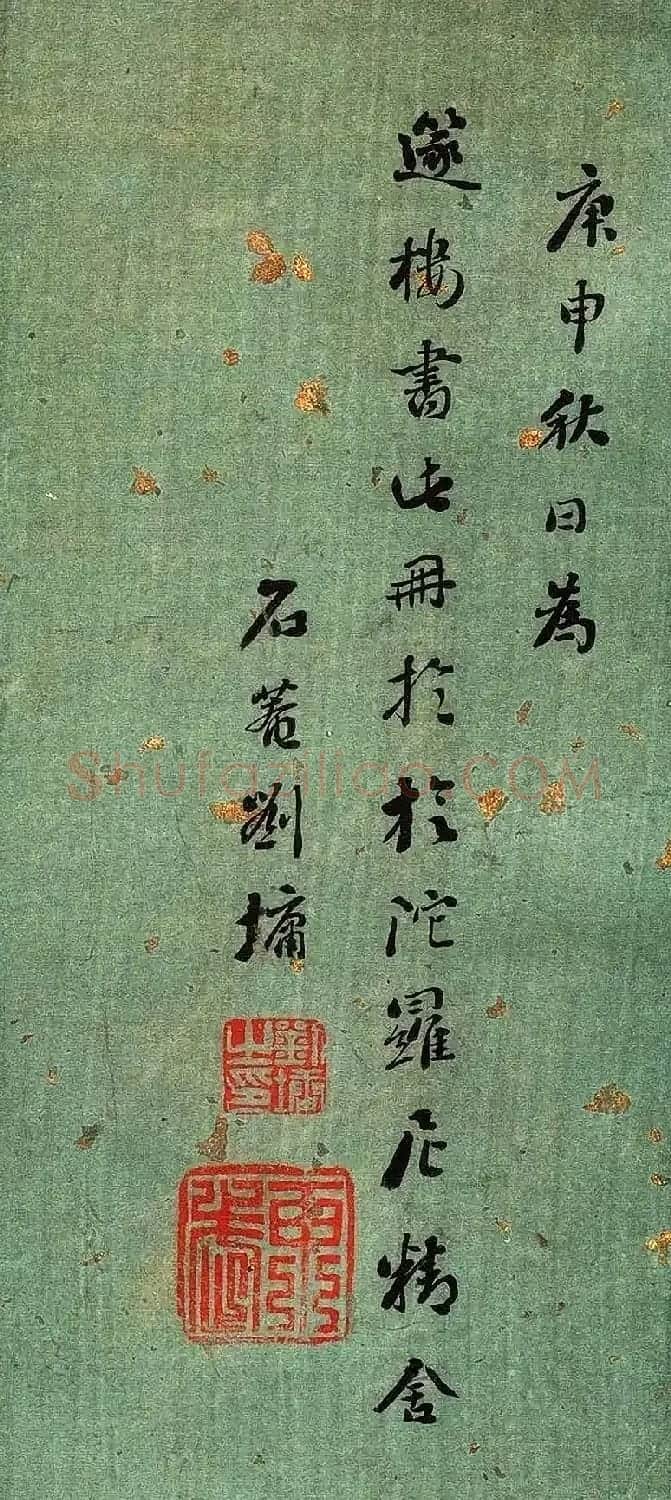 庚申秋日為
篴樓書此冊於於陀羅尼精舍
石菴劉墉
劉墉之印
Shufaziliao.COM